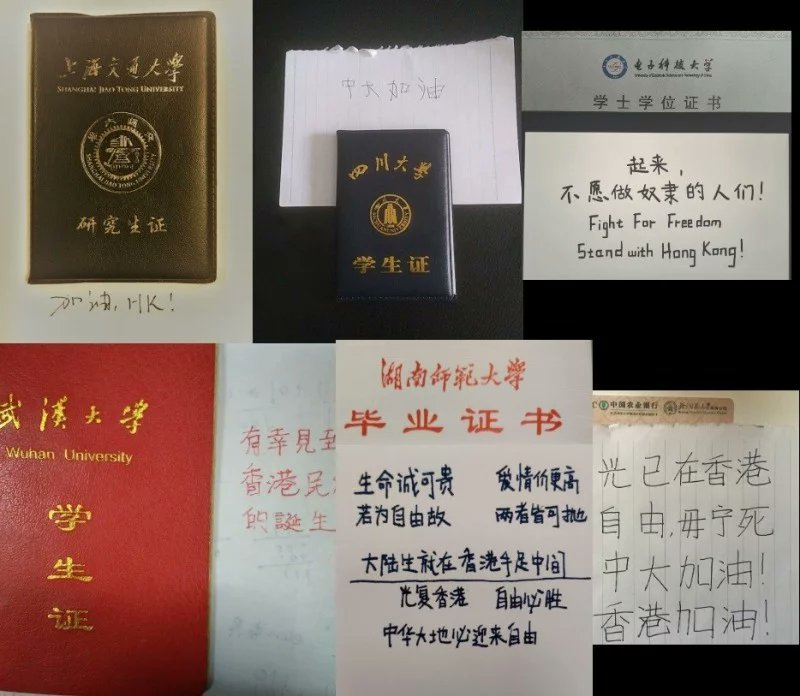 上海交通大学
SHANGHAI JIAO TONG UNIVERSITY
研究生证
加油, HK!
中大加油
四川大学
学生证
电子科技大学
University of Electronic Science and Technology of China
学士学位证书
起来,
不愿做奴隶的人们!
Fight For Freedom
Stand with Hong Kong!
武漢大学
Wuhan University
学
生
证
有幸見
香港民
的誕生
湖南师範大学
毕业证书
生命诚可贵 爱情价更高
若为自由故 两者皆可抛
大陆生就在香港手足中间
光复香港 自由必胜
中华大地必迎来自由
中国农业银行
光已在香港
自由,毋宁死
中大加油!
香港加油!